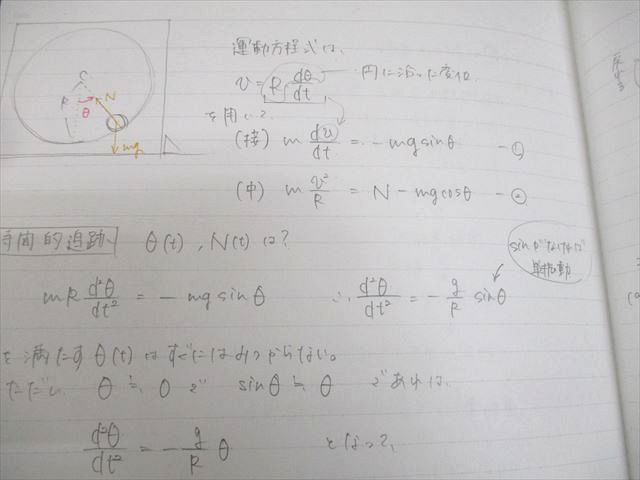 C
R
N
θ
mg
運動方程式は、
v = R dθ/dt 円に沿った変位
を用いて
(接) m dv/dt = -mg sinθ -①
(中) m v²/R = N - mg cosθ -②
時間的追跡 θ(t), N(t) は?
sinがなければ
単振動
mR d²θ/dt² = - mg sinθ ∴ d²θ/dt² = - g/R sinθ
を満たす θ(t) はすぐにはみつからない。
ただし、 θ ≒ 0 で sinθ ≒ θ であれば、
d²θ/dt² = - g/R θ となって、